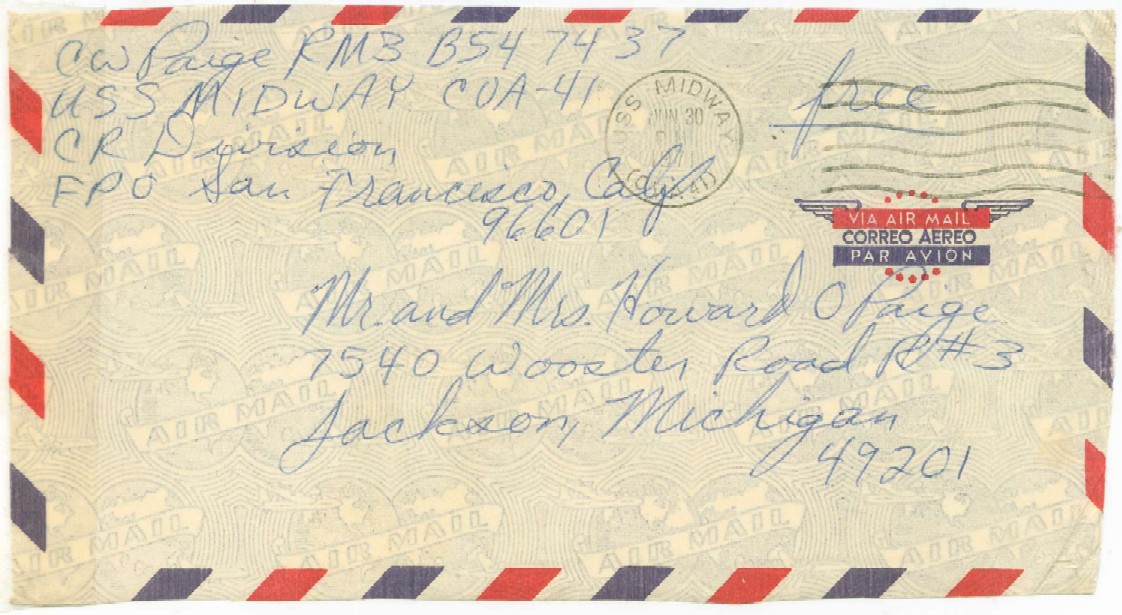 CW Paige RM3 B54 74 37
USS MIDWAY CVA-41
CR Division
FPO San Francisco, Calif
96601
USS MIDWAY
JUN 30
(CVA-41)
free
VIA AIR MAIL
CORREO AEREO
PAR AVION
Mr. and Mrs. Howard O Paige
7540 Wooster Road R#3
Jackson, Michigan
49201
AIR MAIL
AIR MAIL
AIR MAIL
AIR MAIL
AIR MAIL
AIR MAIL